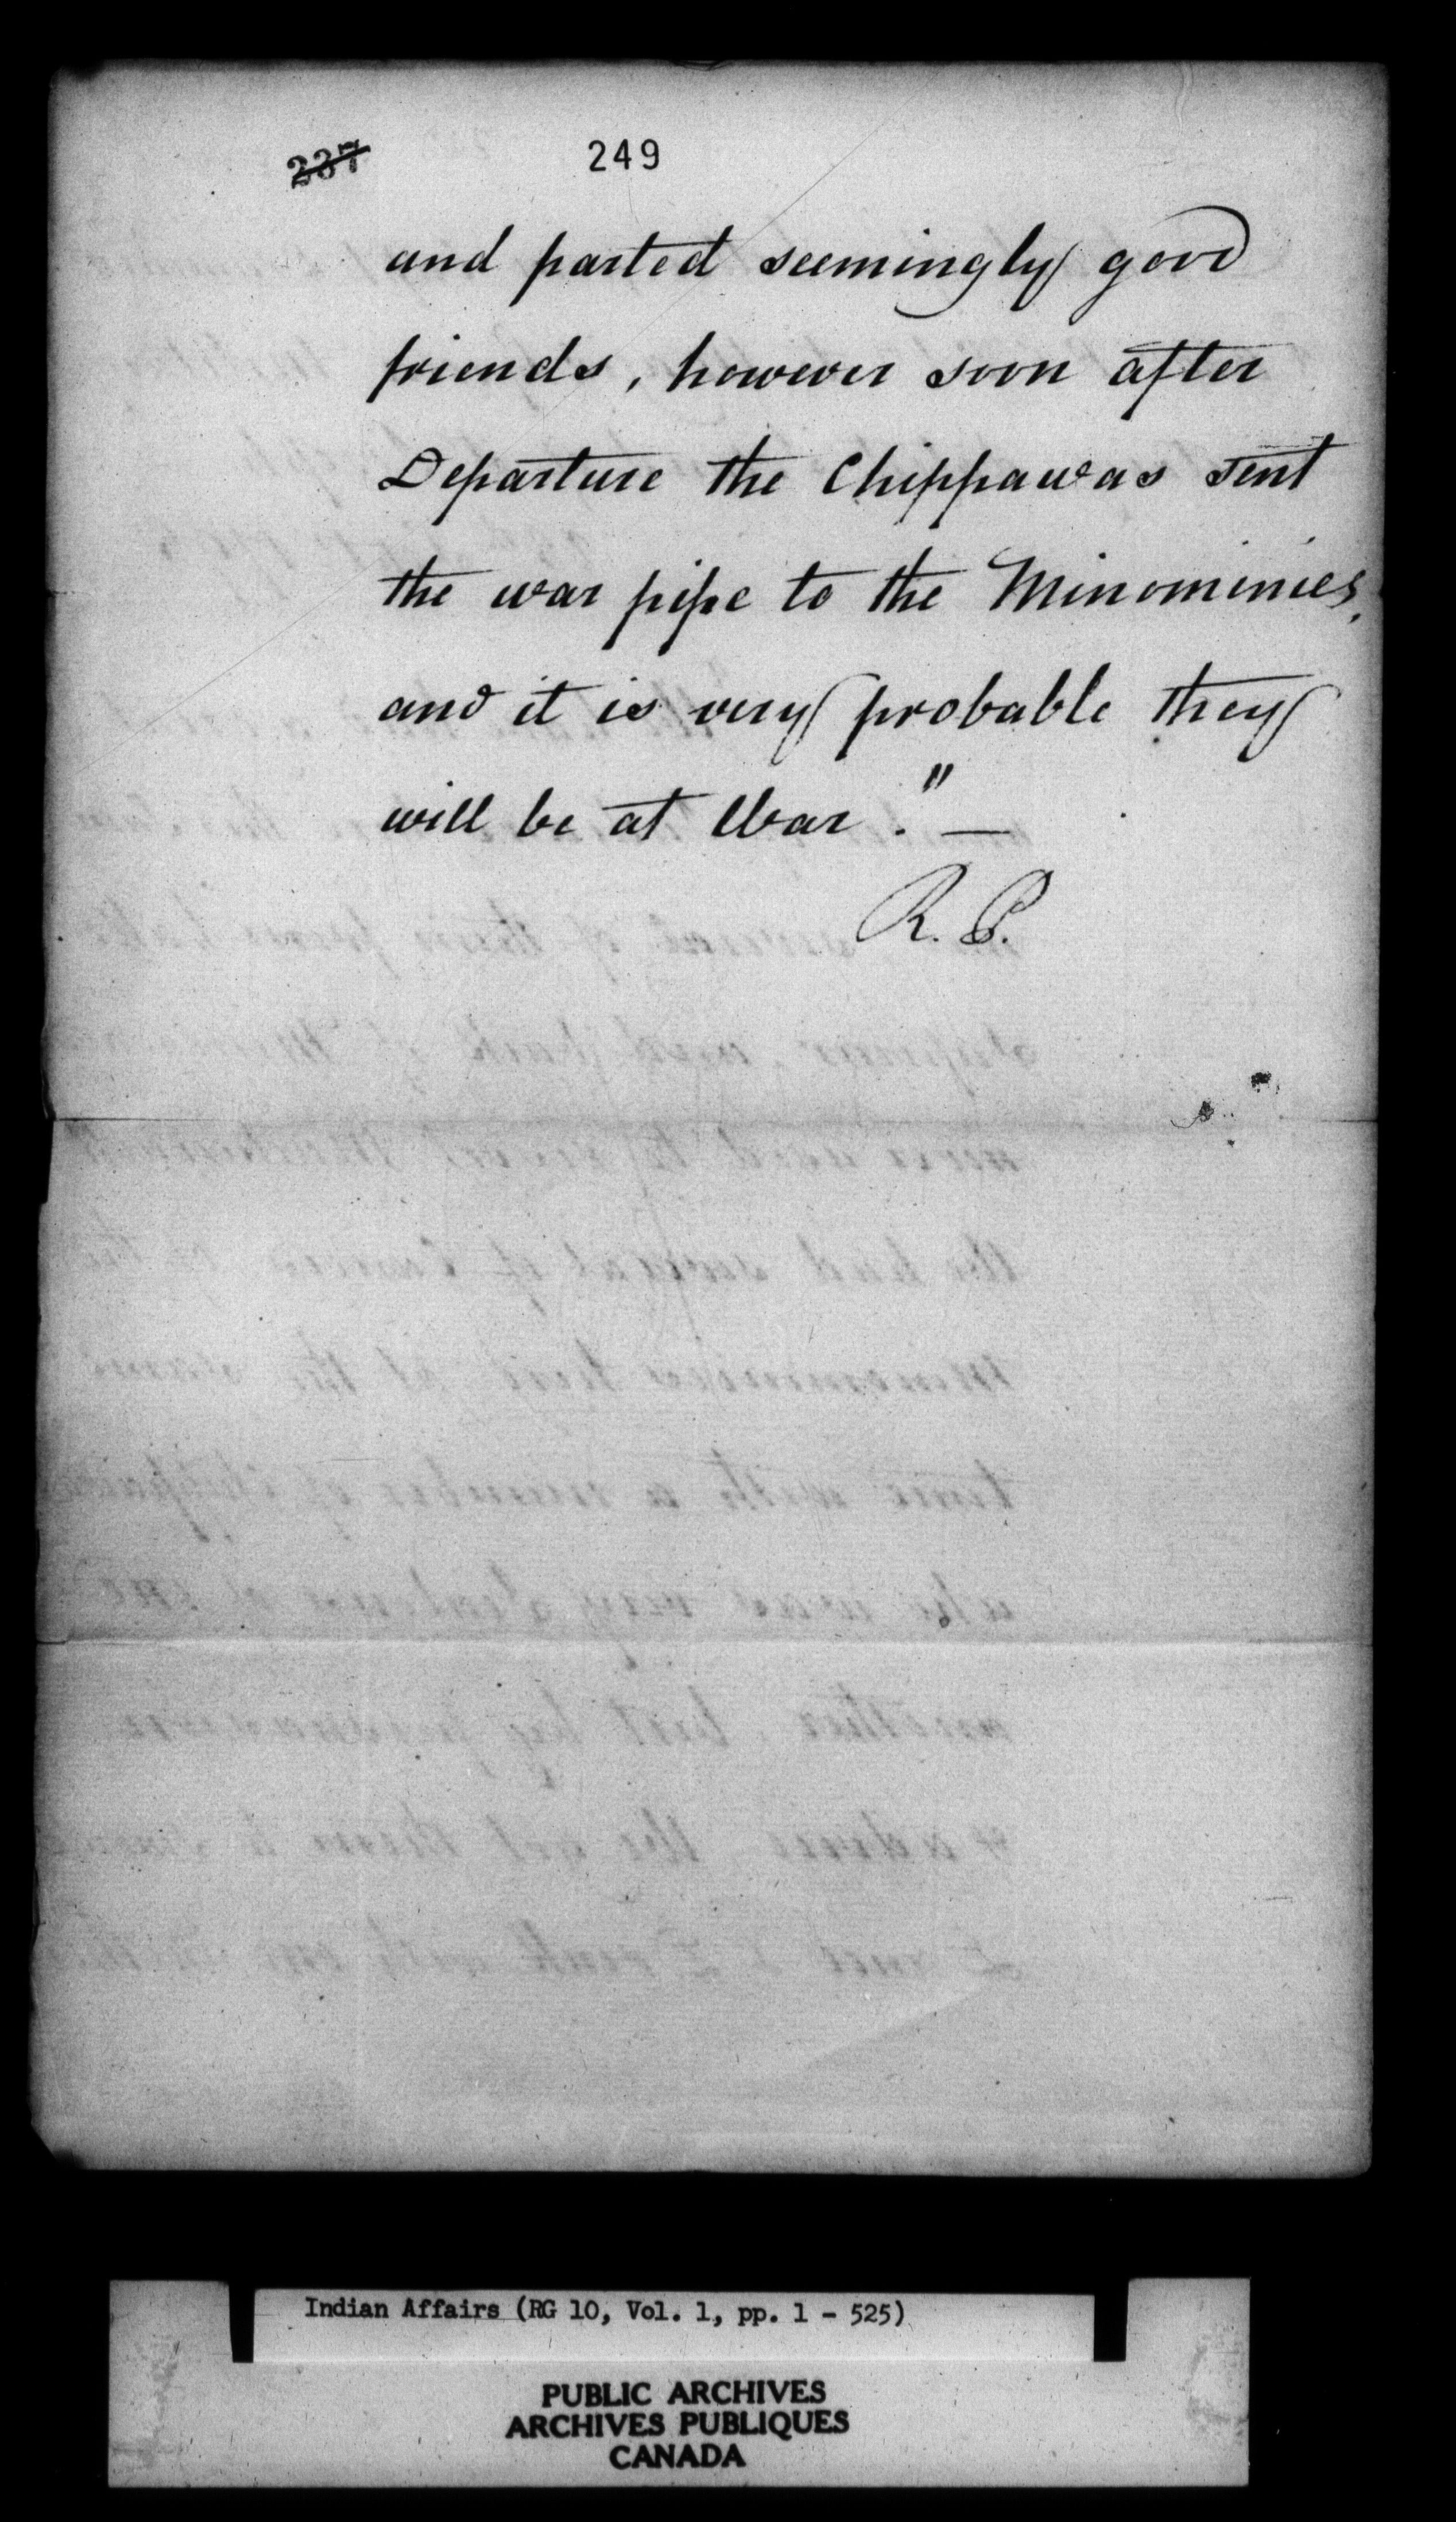 237 249
and parted seemingly good
friends, however soon after
Departure the Chippawas sent
the war pipe to the Minominies,
and it is very probable they
will be at War." —
R. P.
Indian Affairs (RG 10, Vol. 1, pp. 1 - 525)
PUBLIC ARCHIVES
ARCHIVES PUBLIQUES
CANADA